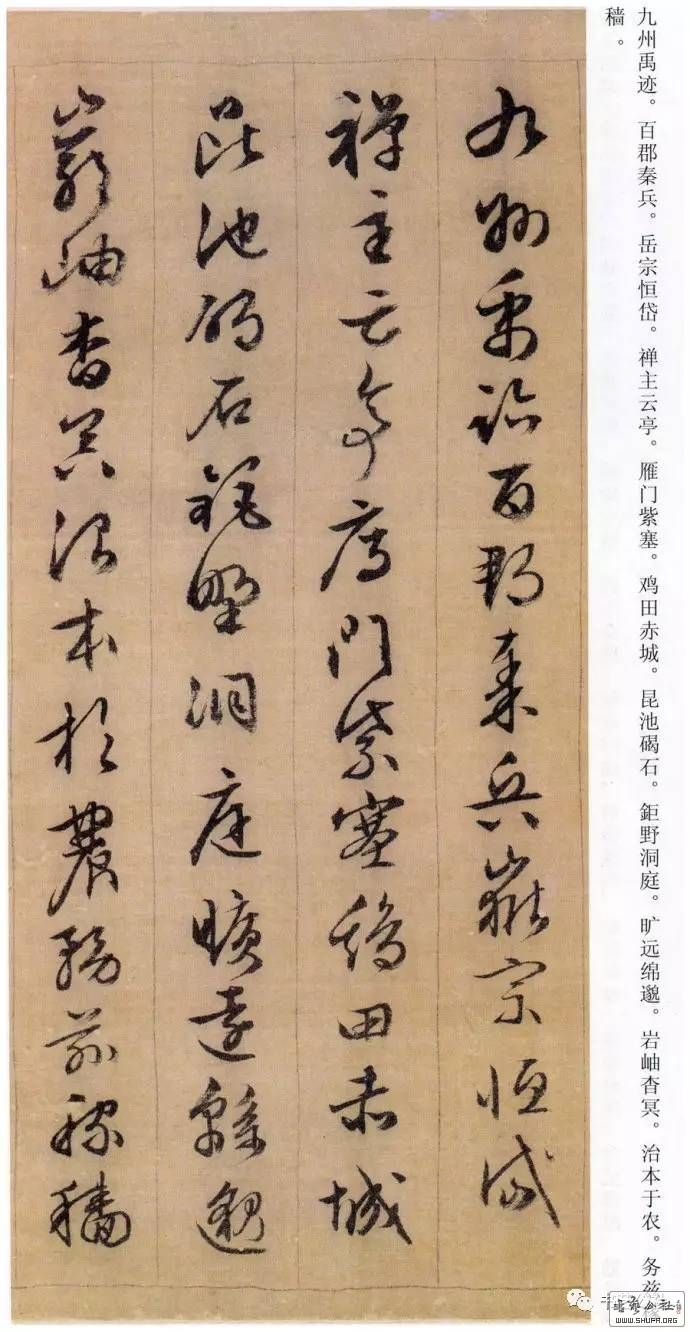 九州禹迹。百郡秦兵。岳宗恒岱。禅主云亭。雁门紫塞。鸡田赤城。昆池碣石。鉅野洞庭。旷远绵邈。岩岫杳冥。治本于农。务兹稼
穑。
九州禹跡百郡秦兵嶽宗恒岱
禪主云亭鴈門紫塞鷄田赤城
昆池碣石鉅野洞庭曠遠緜邈
巖岫杳冥治本於農務茲稼穡
WWW.SHUPA.ORG